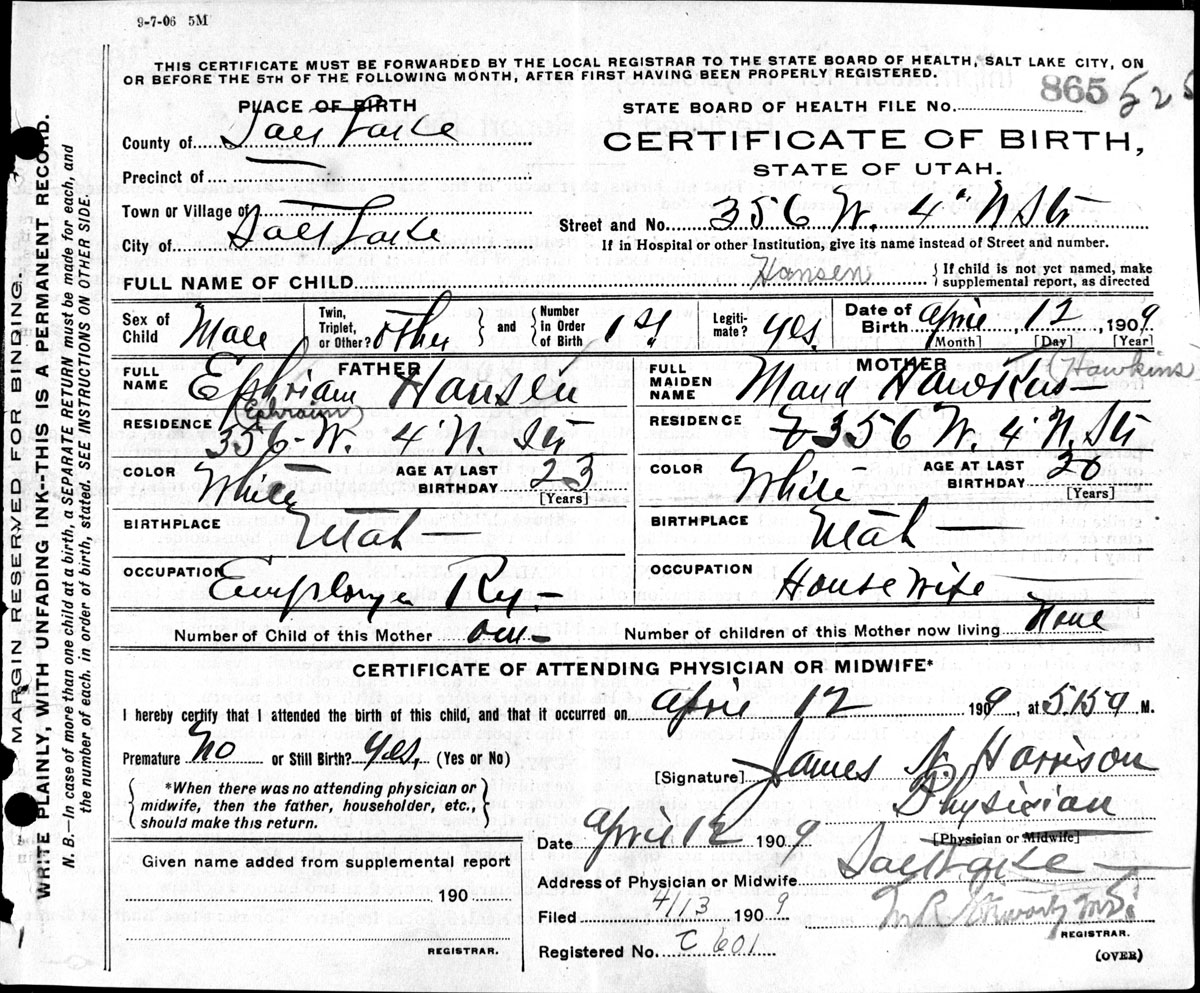 9-7-06 5M
THIS CERTIFICATE MUST BE FORWARDED BY THE LOCAL REGISTRAR TO THE STATE BOARD OF HEALTH, SALT LAKE CITY, ON
OR BEFORE THE 5TH OF THE FOLLOWING MONTH, AFTER FIRST HAVING BEEN PROPERLY REGISTERED.
MARGIN RESERVED FOR BINDING.
WRITE PLAINLY, WITH UNFADING INK--THIS IS A PERMANENT RECORD.
N. B.—In case of more than one child at a birth, a SEPARATE RETURN must be made for each, and
the number of each, in order of birth, stated. SEE INSTRUCTIONS ON OTHER SIDE.
PLACE OF BIRTH
County of Salt Lake
Precinct of
Town or Village of
City of Salt Lake
STATE BOARD OF HEALTH FILE NO. 865 525
CERTIFICATE OF BIRTH,
STATE OF UTAH.
Street and No. 356 W. 4" N. St
If in Hospital or other Institution, give its name instead of Street and number.
FULL NAME OF CHILD Hansen
If child is not yet named, make
supplemental report, as directed
Sex of Child Male Twin, Triplet, or Other? Other and Number in Order of Birth 1st Legitimate? yes. Date of Birth April 12, 1909
[Month] [Day] [Year]
FATHER
FULL NAME Ephriam Hansen
(Ephraim)
RESIDENCE 356 W. 4" N. St
COLOR White AGE AT LAST BIRTHDAY 23 [Years]
BIRTHPLACE Utah
OCCUPATION Employe Ry.
MOTHER
FULL MAIDEN NAME Maud Hawkins (Hawkins)
RESIDENCE 356 W. 4" N. St
COLOR White AGE AT LAST BIRTHDAY 20 [Years]
BIRTHPLACE Utah
OCCUPATION House wife
Number of Child of this Mother one Number of children of this Mother now living None
CERTIFICATE OF ATTENDING PHYSICIAN OR MIDWIFE*
I hereby certify that I attended the birth of this child, and that it occurred on April 12 1909, at 5:15 a M.
Premature No or Still Birth? Yes, (Yes or No)
*When there was no attending physician or
midwife, then the father, householder, etc.,
should make this return.
[Signature] James N. Harrison
Physician
[Physician or Midwife]
Date April 12 1909
Address of Physician or Midwife Salt Lake
Filed 4/13 1909
Registered No. C 601
M.D.
REGISTRAR.
(OVER)
Given name added from supplemental report
190
REGISTRAR.